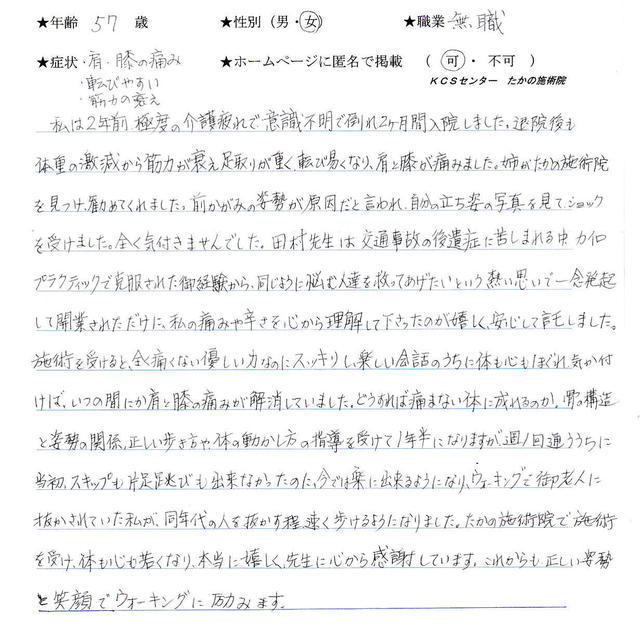 ★年齢 57 歳 ★性別(男・女) ★職業 無職
★症状・肩・膝の痛み ★ホームページに匿名で掲載 (可・不可)
・転びやすい KCSセンター たかの施術院
・筋力の衰え
私は2年前極度の介護疲れで意識不明で倒れ2ヶ月間入院しました。退院後も
体重の激減から筋力が衰え足取りが重く、転び易くなり、肩と膝が痛みました。姉がたかの施術院
を見つけ、勧めてくれました。前かがみの姿勢が原因だと言われ、自分の立ち姿の写真を見てショック
を受けました。全く気付きませんでした。田村先生は交通事故の後遺症に苦しまれる中カイロ
プラクティックで克服された御経験から、同じように悩む人達を救ってあげたいという熱い思いで一念発起
して開業されただけに、私の痛みや辛さを心から理解して下さったのが嬉しく、安心して託しました。
施術を受けると、全く痛くない優しい力なのにスッキリし、楽しい会話のうちに体も心もほぐれ気が付
けば、いつの間にか肩と膝の痛みが解消していました。どうすれば痛まない体に成れるのか、骨の構造
と姿勢の関係、正しい歩き方や、体の動かし方の指導を受けて1年半になりますが週1回通ううちに
当初、スキップも片足跳びも出来なかったのに、今では楽に出来るようになり、ウォーキングで御老人に
抜かされていた私が、同年代の人を抜かす程、速く歩けるようになりました。たかの施術院で施術
を受け、体も心も若くなり、本当に嬉しく、先生に心から感謝しています。これからも正しい姿勢
と笑顔でウォーキングに励みます。